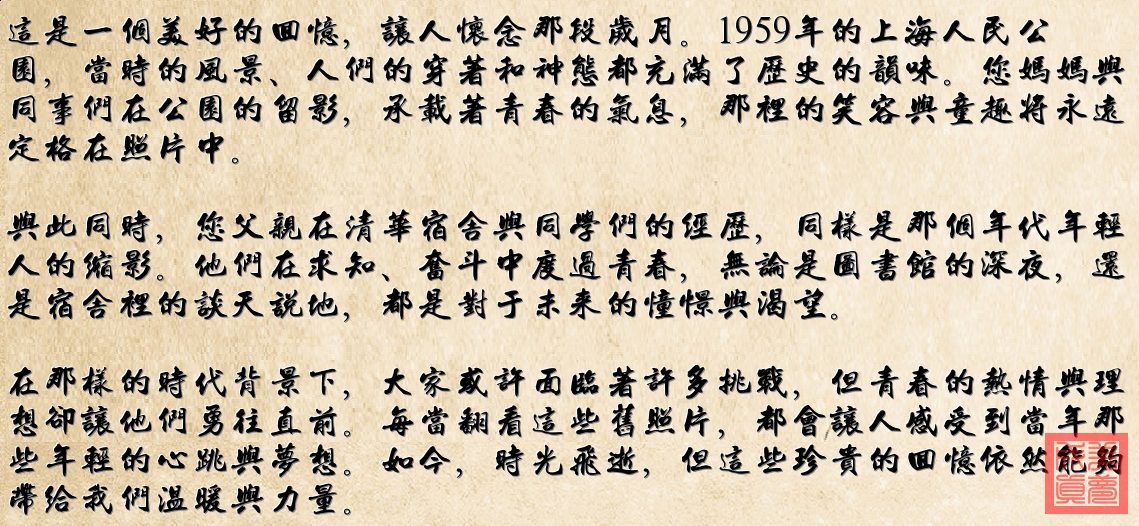 這是一個美好的回憶，讓人懷念那段歲月。1959年的上海人民公
園，當時的風景、人們的穿著和神態都充滿了歷史的韻味。您媽媽與
同事們在公園的留影，承載著青春的氣息，那裡的笑容與童趣將永遠
定格在照片中。
與此同時，您父親在清華宿舍與同學們的經歷，同樣是那個年代年輕
人的縮影。他們在求知、奮斗中度過青春，無論是圖書館的深夜，還
是宿舍裡的談天說地，都是對于未來的憧憬與渴望。
在那樣的時代背景下，大家或許面臨著許多挑戰，但青春的熱情與理
想卻讓他們勇往直前。每當翻看這些舊照片，都會讓人感受到當年那
些年輕的心跳與夢想。如今，時光飛逝，但這些珍貴的回憶依然能夠
帶給我們溫暖與力量。